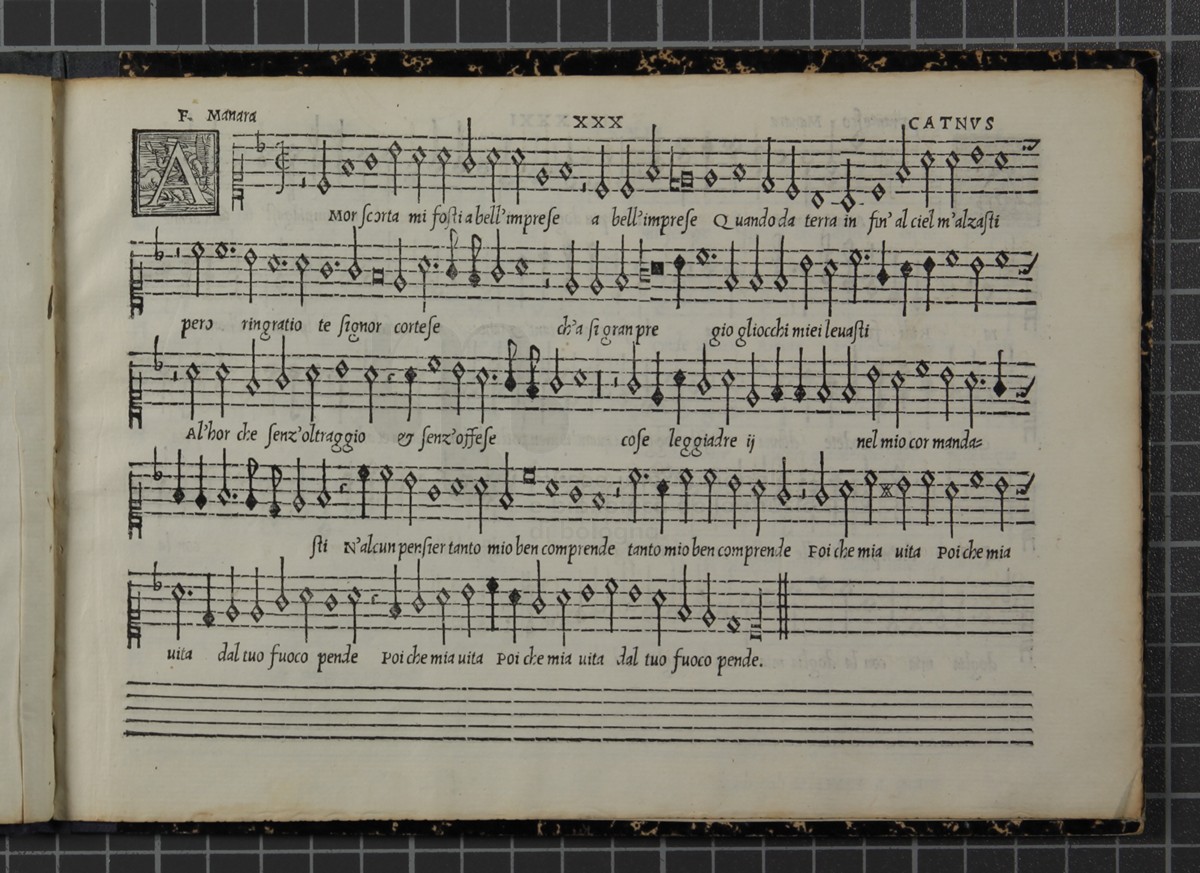 F. Manara XXX CATNVS
AMor scorta mi fosti a bell'imprese a bell'imprese Quando da terra in fin' al ciel m'alzasti
pero ringratio te signor cortese ch'a si gran pre gio gliocchi miei leuasti
Al'hor che senz'oltraggio & senz'offese cose leggiadre ij nel mio cor manda=
sti N'alcun pensier tanto mio ben comprende tanto mio ben comprende Poi che mia uita Poi che mia
uita dal tuo fuoco pende Poi che mia uita Poi che mia uita dal tuo fuoco pende.